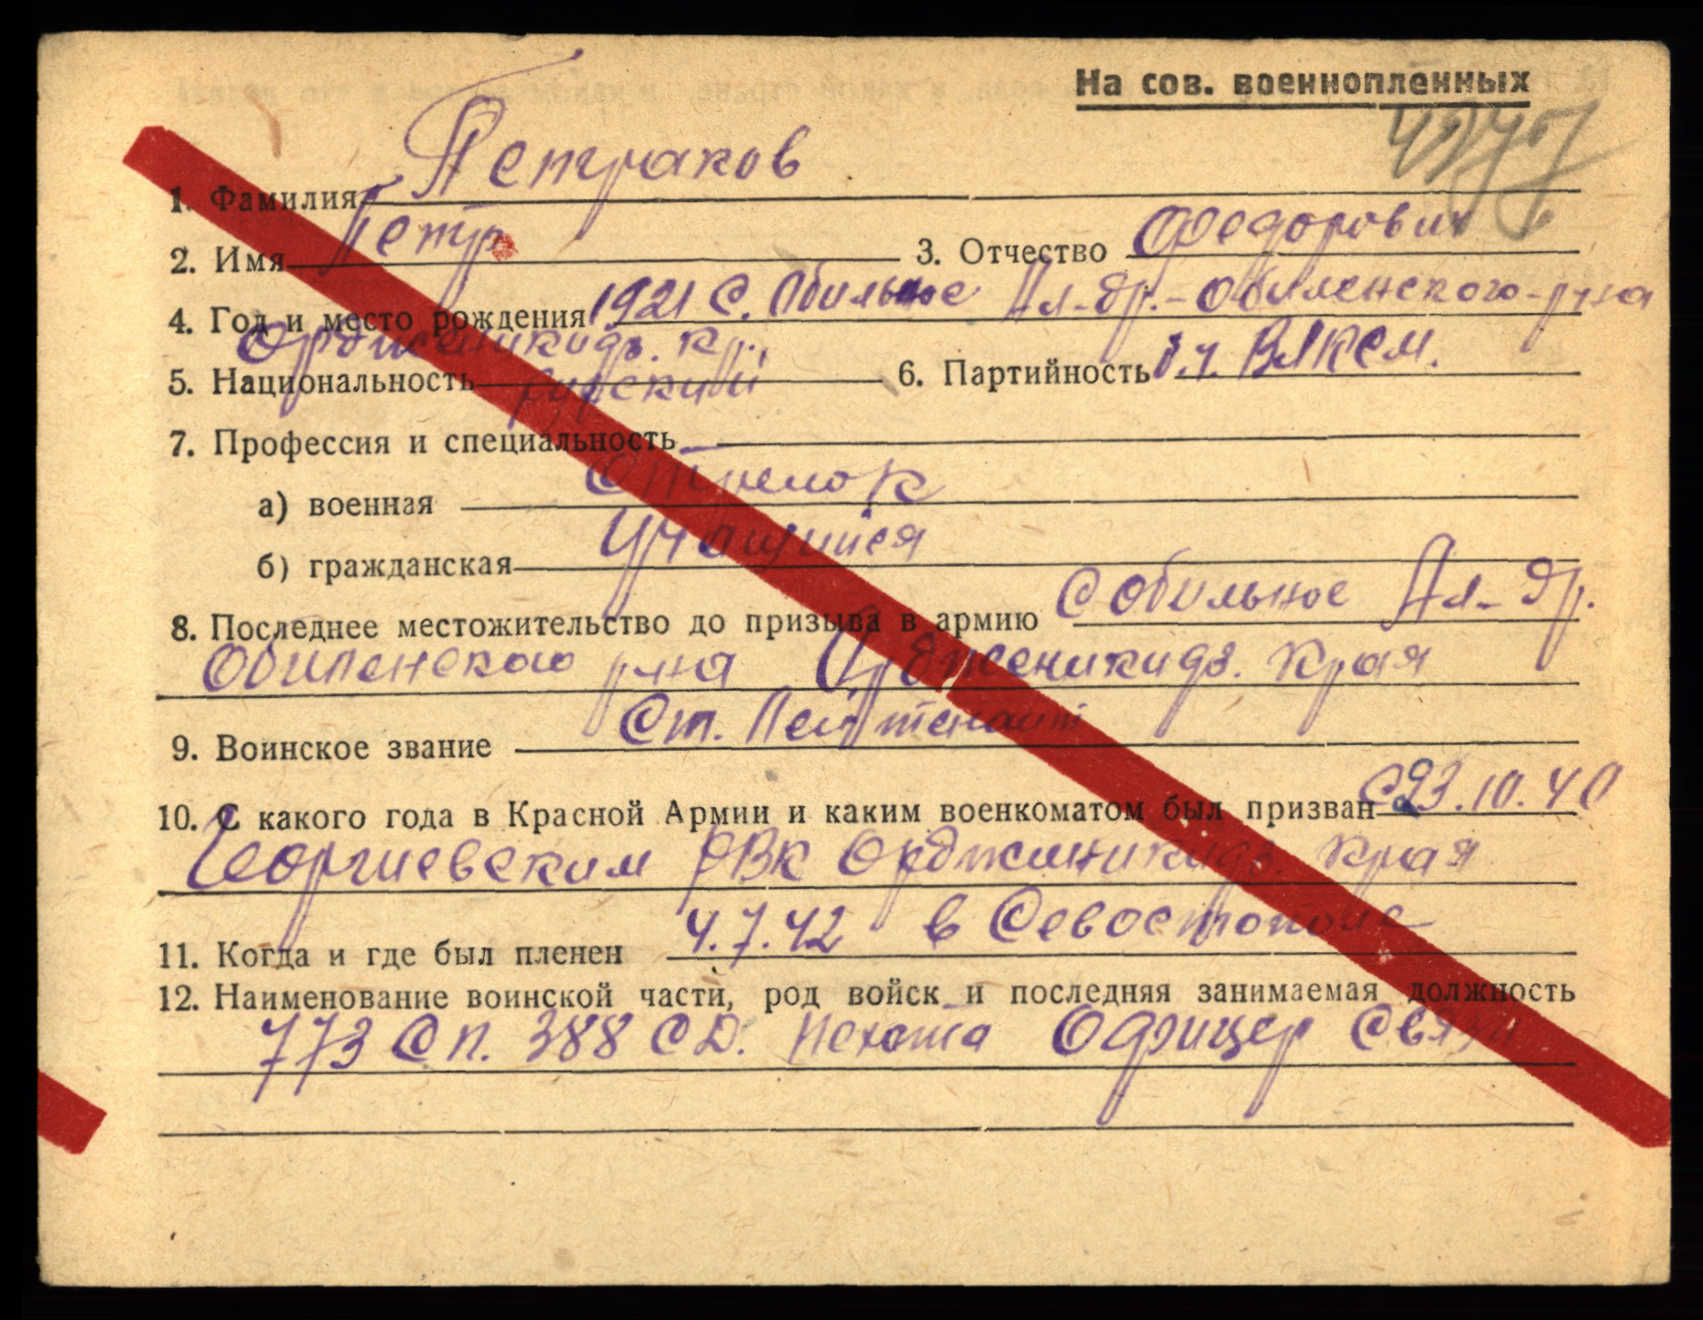 На сов. военнопленных
1. Фамилия Петраков
2. Имя Петр 3. Отчество Федорович
4. Год и место рождения 1921 С. Обильное Ал-др.-Обиленского р-на
Орджоникидз. кр.
5. Национальность русский 6. Партийность б.ч. ВЛКСМ.
7. Профессия и специальность
а) военная Стрелок
б) гражданская Учащийся
8. Последнее местожительство до призыва в армию С Обильное Ал-др.
Обиленского р-на Орджоникидз. Края
9. Воинское звание Ст. Лейтенант
10. С какого года в Красной Армии и каким военкоматом был призван С 23.10.40
Георгиевским РВК Орджоникидз. Края
11. Когда и где был пленен 4.7.42 в Севостополе
12. Наименование воинской части, род войск и последняя занимаемая должность
773 СП. 388 СД. Пехота Офицер Связи